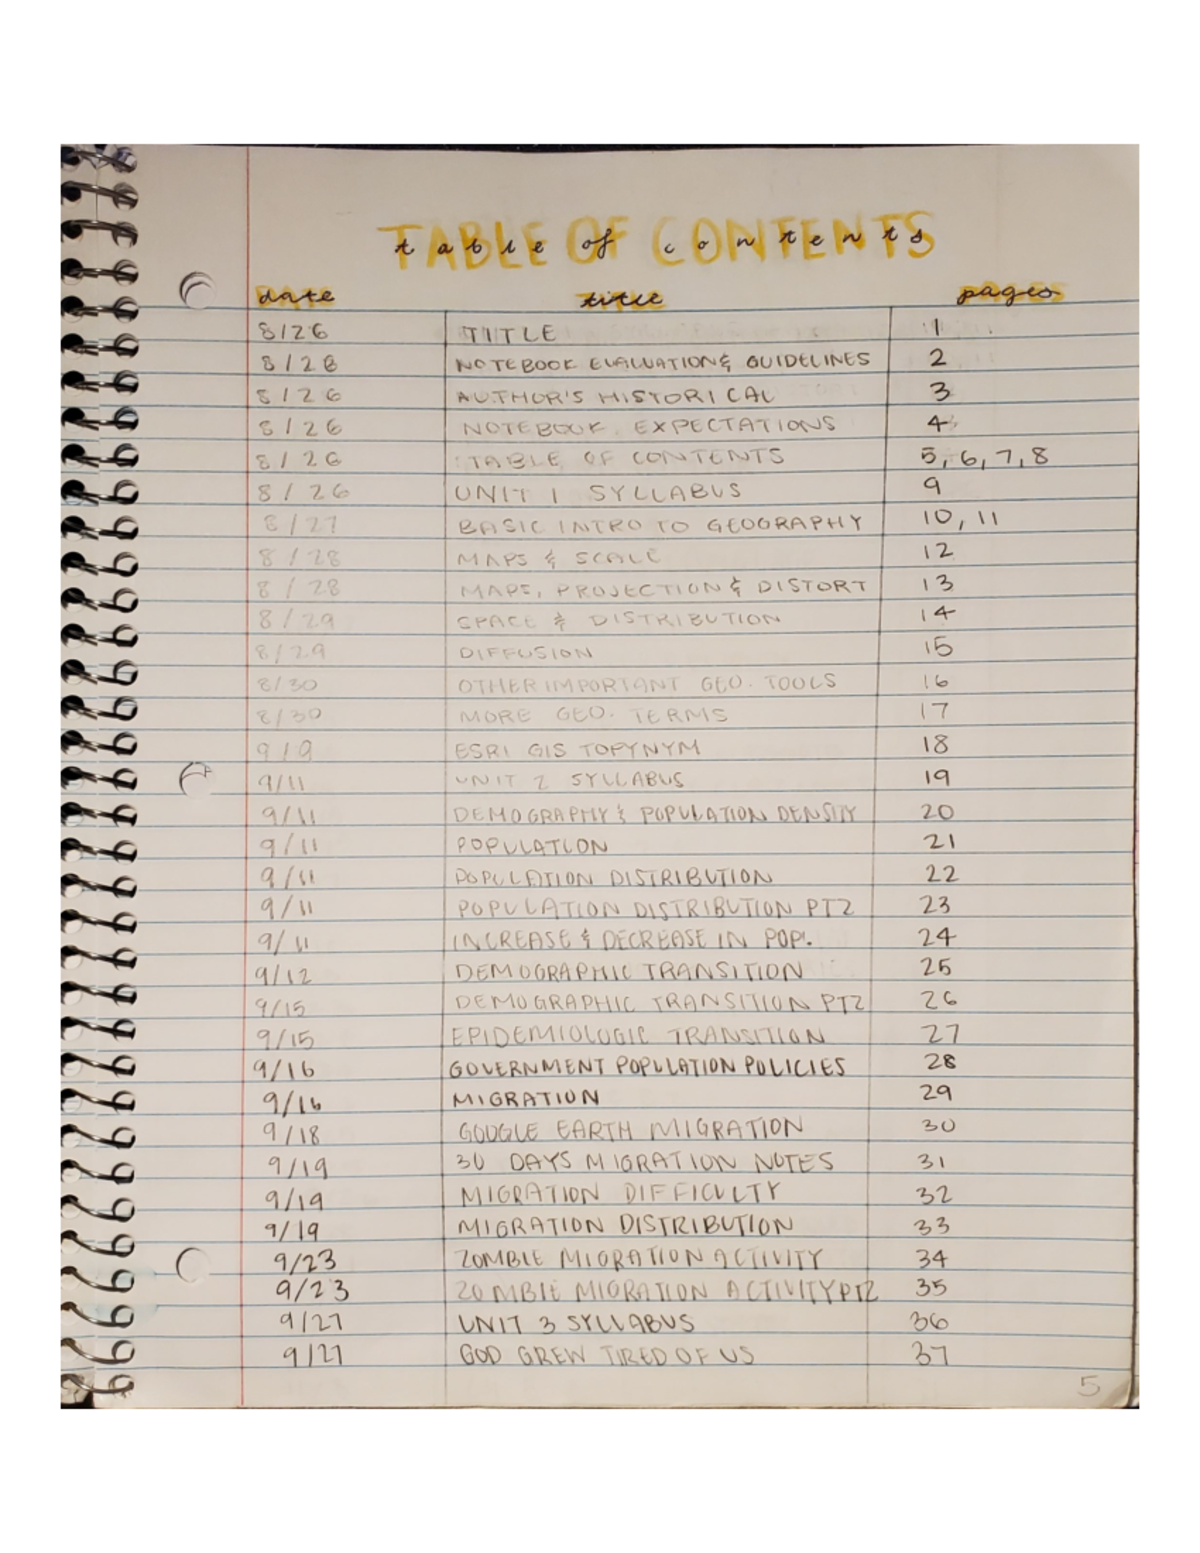 TABLE OF CONTENTS
table of contents
date title pages
8/26 TITLE 1
8/28 NOTEBOOK EVALUATION & GUIDELINES 2
8/26 AUTHOR'S HISTORICAL 3
8/26 NOTEBOOK EXPECTATIONS 4
8/26 TABLE OF CONTENTS 5, 6, 7, 8
8/26 UNIT 1 SYLLABUS 9
8/27 BASIC INTRO TO GEOGRAPHY 10, 11
8/28 MAPS & SCALE 12
8/28 MAPS, PROJECTION & DISTORT 13
8/29 SPACE & DISTRIBUTION 14
8/29 DIFFUSION 15
8/30 OTHER IMPORTANT GEO. TOOLS 16
8/30 MORE GEO. TERMS 17
9/9 ESRI GIS TOPYNYM 18
9/11 UNIT 2 SYLLABUS 19
9/11 DEMOGRAPHY & POPULATION DENSITY 20
9/11 POPULATION 21
9/11 POPULATION DISTRIBUTION 22
9/11 POPULATION DISTRIBUTION PT2 23
9/11 INCREASE & DECREASE IN POP. 24
9/12 DEMOGRAPHIC TRANSITION 25
9/15 DEMOGRAPHIC TRANSITION PT2 26
9/15 EPIDEMIOLOGIC TRANSITION 27
9/16 GOVERNMENT POPULATION POLICIES 28
9/16 MIGRATION 29
9/18 GOOGLE EARTH MIGRATION 30
9/19 30 DAYS MIGRATION NOTES 31
9/19 MIGRATION DIFFICULTY 32
9/19 MIGRATION DISTRIBUTION 33
9/23 ZOMBIE MIGRATION ACTIVITY 34
9/23 ZOMBIE MIGRATION ACTIVITY PT2 35
9/27 UNIT 3 SYLLABUS 36
9/27 GOD GREW TIRED OF US 37
5